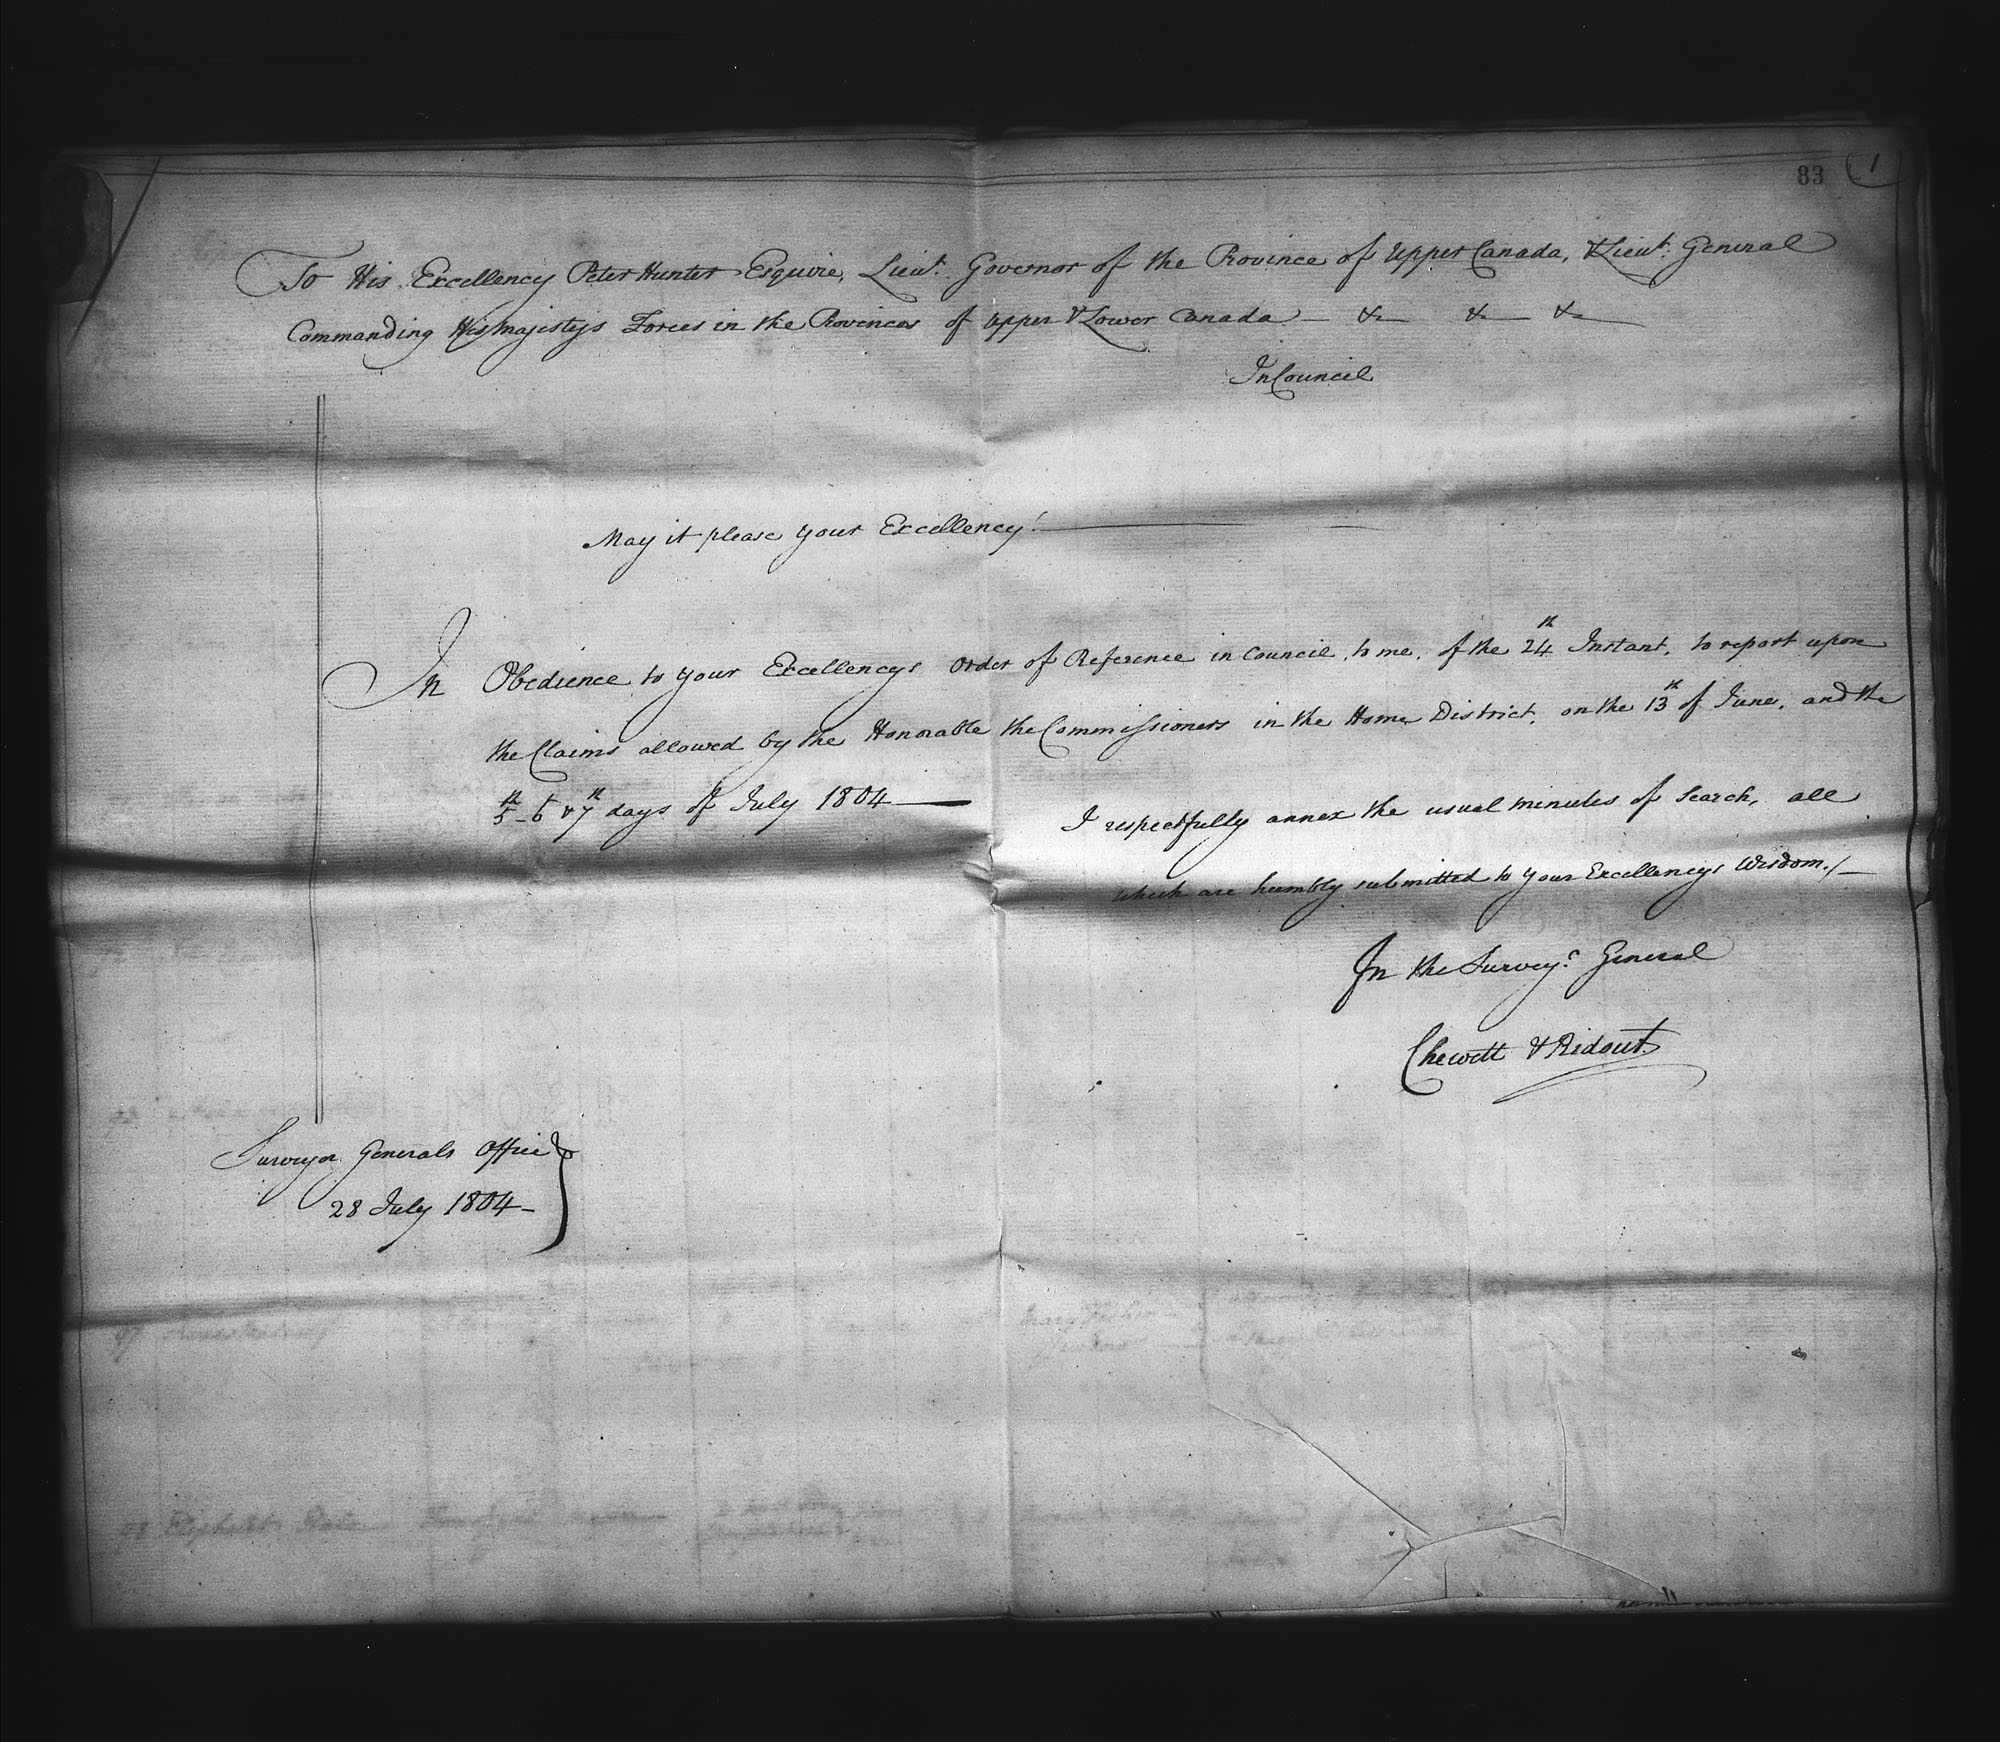 83 1
To His Excellency Peter Hunter Esquire, Lieut. Governor of the Province of Upper Canada, & Lieut. General
Commanding His Majestys Forces in the Provinces of Upper & Lower Canada — &c — &c — &c —
In Council
May it please your Excellency! —
In Obedience to your Excellencys Order of Reference in Council, to me, of the 24th Instant, to report upon
the Claims allowed by the Honorable the Commissioners in the Home District, on the 13th of June, and the
5th - 6 & 7th days of July 1804 —
I respectfully annex the usual minutes of Search, all
which are humbly submitted to your Excellencys Wisdom ./—
In the Surveyr General
Chewett & Ridout
Surveyor Generals Office
28 July 1804 -
97
Mary Fisher
98 Elizabeth